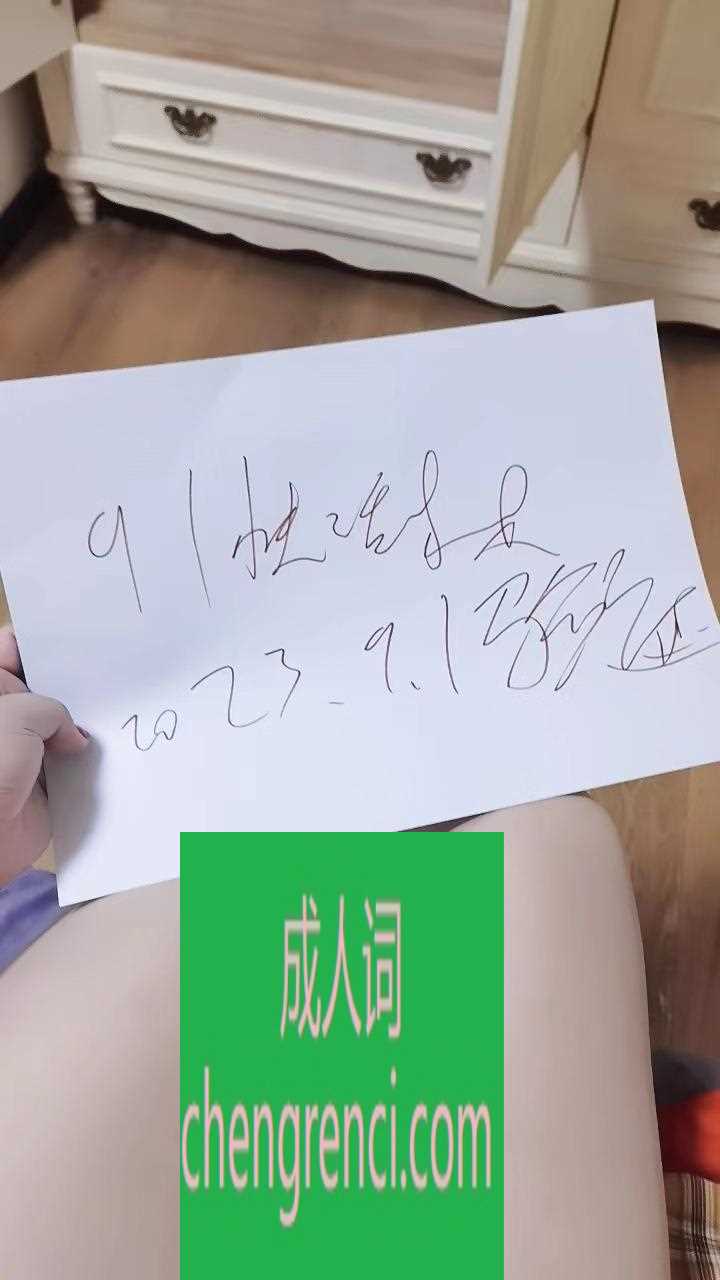 91快活春天
2023.9.1验证
成人词
chengrenci.com